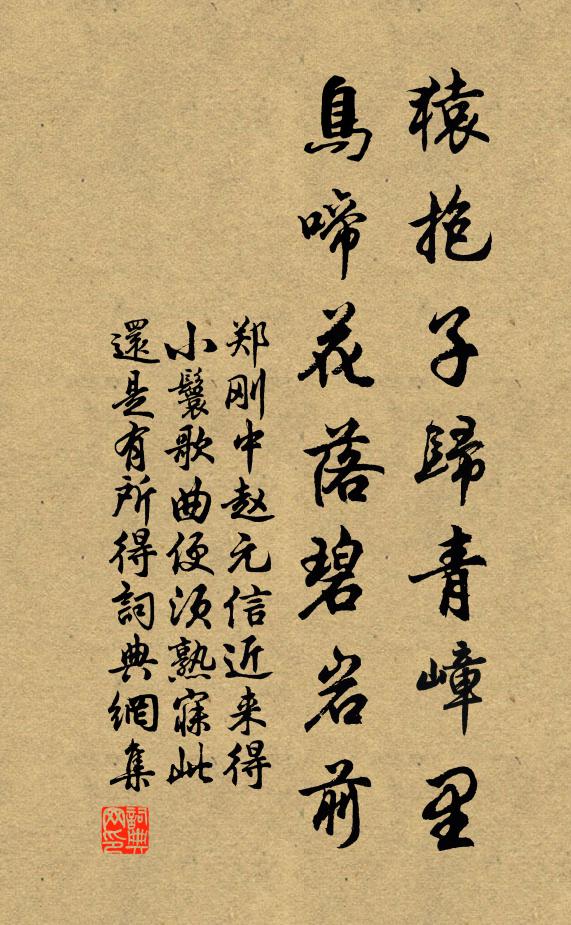 猿抱子歸青嶂里
鳥啼花落碧岩前
郑刚中赵元信近来得
小鬟歌曲便须熟寐此
還是有所得詞典網集
詞典
网印